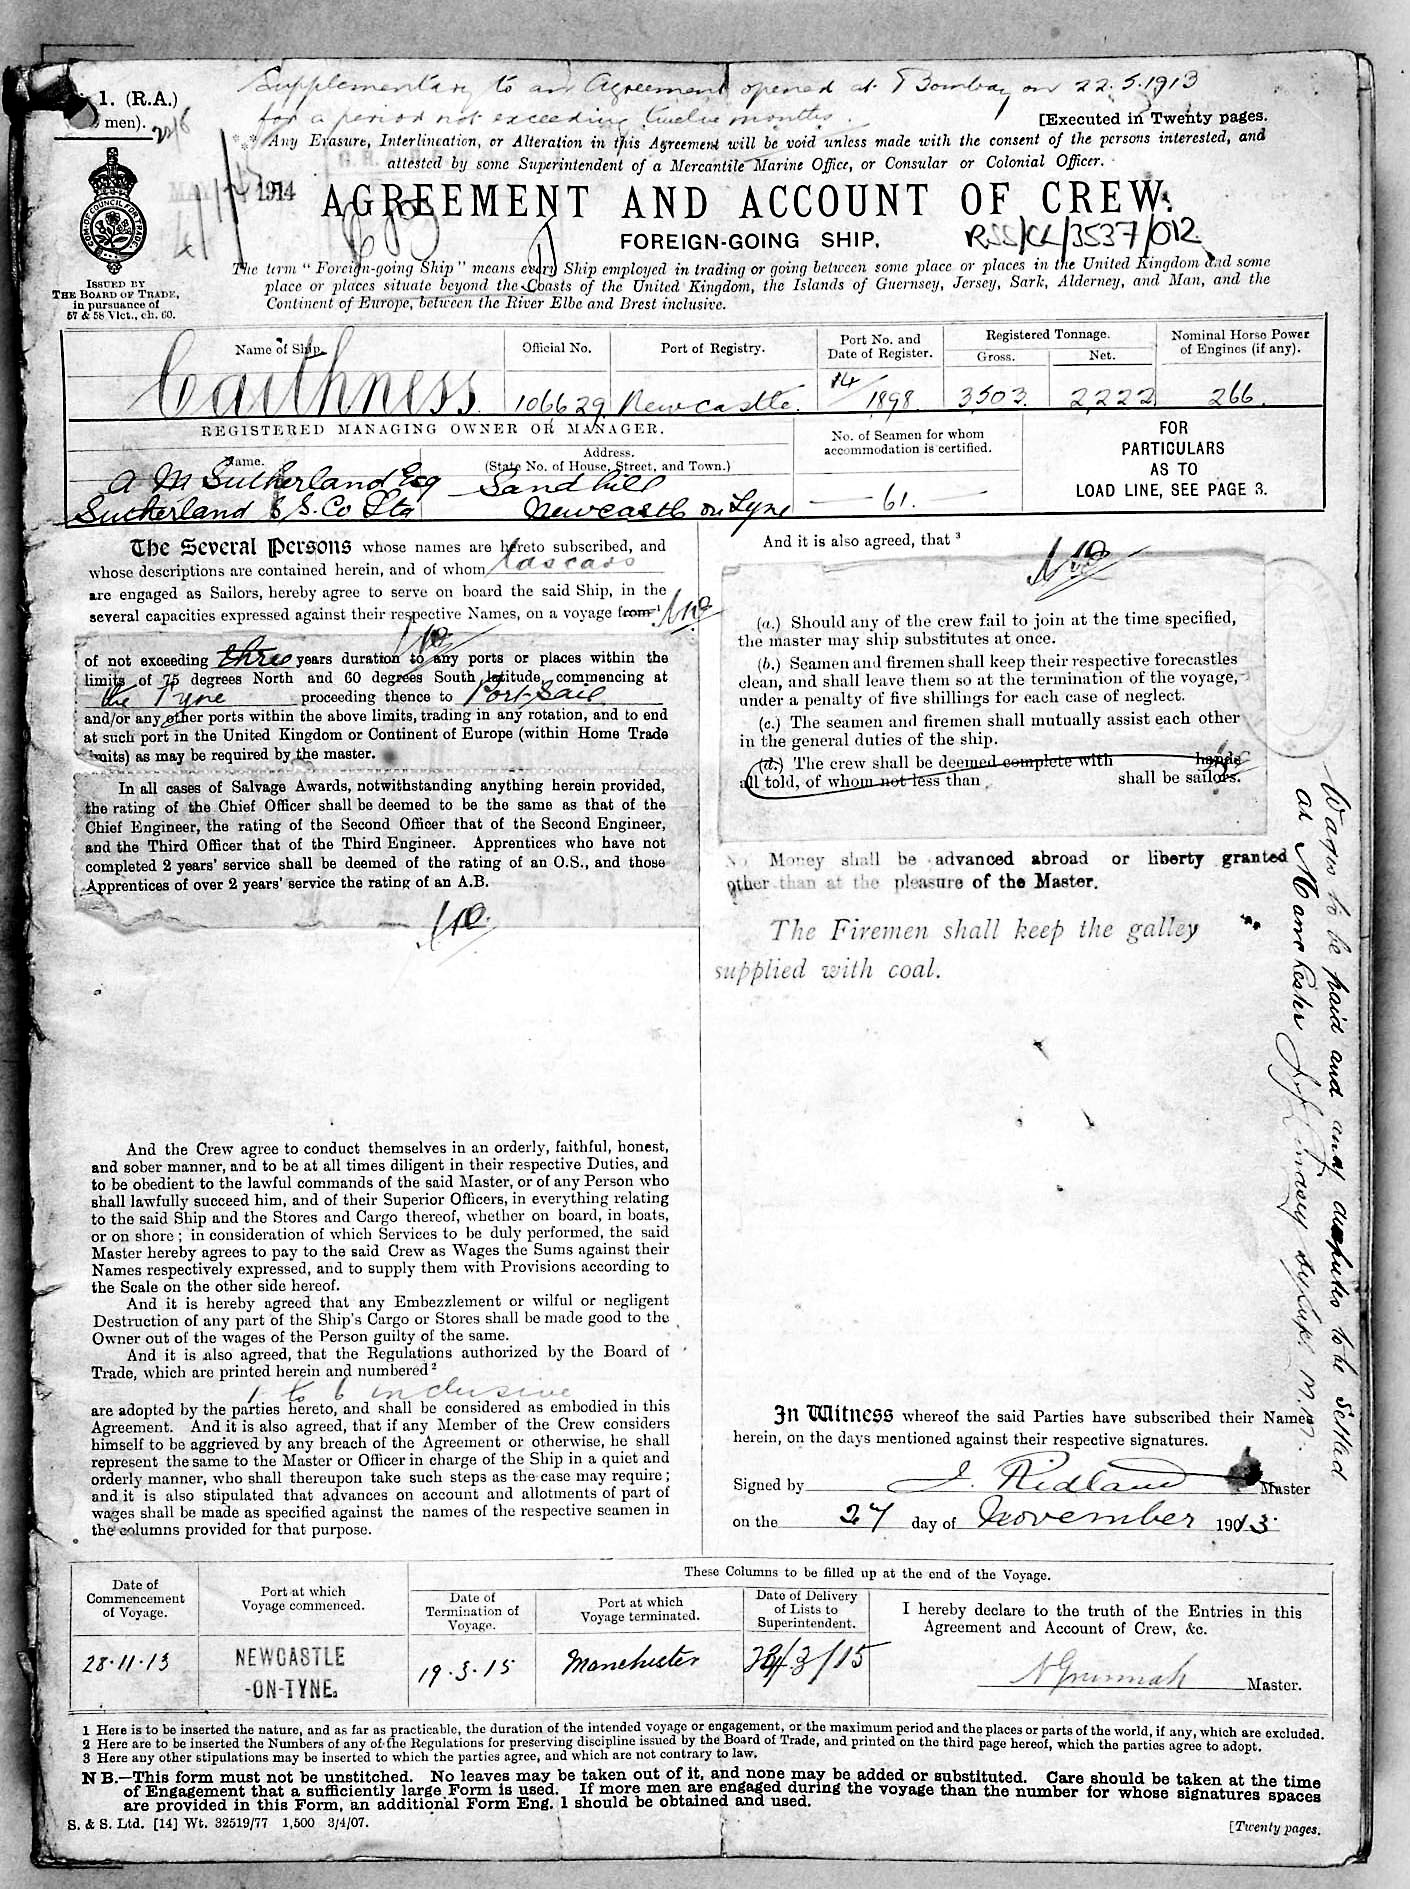 Supplementary to an Agreement opened at Bombay on 22.5.1913
for a period not exceeding twelve months.
1. (R.A.)
men).
[Executed in Twenty pages.
Any Erasure, Interlineation, or Alteration in this Agreement will be void unless made with the consent of the persons interested, and
attested by some Superintendent of a Mercantile Marine Office, or Consular or Colonial Officer.
1914
AGREEMENT AND ACCOUNT OF CREW.
FOREIGN-GOING SHIP.
RSS/CL/3537/012
ISSUED BY
THE BOARD OF TRADE,
in pursuance of
57 & 58 Vict., ch. 60.
The term "Foreign-going Ship" means every Ship employed in trading or going between some place or places in the United Kingdom and some
place or places situate beyond the Coasts of the United Kingdom, the Islands of Guernsey, Jersey, Sark, Alderney, and Man, and the
Continent of Europe, between the River Elbe and Brest inclusive.
Name of Ship. Official No. Port of Registry. Port No. and Date of Register. Registered Tonnage. Gross. Net. Nominal Horse Power of Engines (if any).
Caithness 106629 Newcastle 14/1898 3503 2222 266
REGISTERED MANAGING OWNER OR MANAGER.
Name. Address.
(State No. of House, Street, and Town.)
No. of Seamen for whom
accommodation is certified.
FOR
PARTICULARS
AS TO
LOAD LINE, SEE PAGE 3.
A M Sutherland Esq Sandhill
Sutherland S.S. Co Ltd Newcastle on Tyne
61.
The Several Persons whose names are hereto subscribed, and
whose descriptions are contained herein, and of whom lascars
are engaged as Sailors, hereby agree to serve on board the said Ship, in the
several capacities expressed against their respective Names, on a voyage from
of not exceeding three years duration to any ports or places within the
limits of 75 degrees North and 60 degrees South latitude, commencing at
the Tyne proceeding thence to Port Said
and/or any other ports within the above limits, trading in any rotation, and to end
at such port in the United Kingdom or Continent of Europe (within Home Trade
limits) as may be required by the master.
In all cases of Salvage Awards, notwithstanding anything herein provided,
the rating of the Chief Officer shall be deemed to be the same as that of the
Chief Engineer, the rating of the Second Officer that of the Second Engineer,
and the Third Officer that of the Third Engineer. Apprentices who have not
completed 2 years' service shall be deemed of the rating of an O.S., and those
Apprentices of over 2 years' service the rating of an A.B.
And the Crew agree to conduct themselves in an orderly, faithful, honest,
and sober manner, and to be at all times diligent in their respective Duties, and
to be obedient to the lawful commands of the said Master, or of any Person who
shall lawfully succeed him, and of their Superior Officers, in everything relating
to the said Ship and the Stores and Cargo thereof, whether on board, in boats,
or on shore; in consideration of which Services to be duly performed, the said
Master hereby agrees to pay to the said Crew as Wages the Sums against their
Names respectively expressed, and to supply them with Provisions according to
the Scale on the other side hereof.
And it is hereby agreed that any Embezzlement or wilful or negligent
Destruction of any part of the Ship's Cargo or Stores shall be made good to the
Owner out of the wages of the Person guilty of the same.
And it is also agreed, that the Regulations authorized by the Board of
Trade, which are printed herein and numbered 2
1 to 6 inclusive
are adopted by the parties hereto, and shall be considered as embodied in this
Agreement. And it is also agreed, that if any Member of the Crew considers
himself to be aggrieved by any breach of the Agreement or otherwise, he shall
represent the same to the Master or Officer in charge of the Ship in a quiet and
orderly manner, who shall thereupon take such steps as the case may require;
and it is also stipulated that advances on account and allotments of part of
wages shall be made as specified against the names of the respective seamen in
the columns provided for that purpose.
And it is also agreed, that 3
(a.) Should any of the crew fail to join at the time specified,
the master may ship substitutes at once.
(b.) Seamen and firemen shall keep their respective forecastles
clean, and shall leave them so at the termination of the voyage,
under a penalty of five shillings for each case of neglect.
(c.) The seamen and firemen shall mutually assist each other
in the general duties of the ship.
(d.) The crew shall be deemed complete with hands
all told, of whom not less than shall be sailors.
No Money shall be advanced abroad or liberty granted
other than at the pleasure of the Master.
The Firemen shall keep the galley
supplied with coal.
Wages to be paid and any disputes to be settled
at Manchester
In Witness whereof the said Parties have subscribed their Names
herein, on the days mentioned against their respective signatures.
Signed by J. Ridland Master
on the 27 day of November 1913
Date of
Commencement
of Voyage.
Port at which
Voyage commenced.
These Columns to be filled up at the end of the Voyage.
Date of
Termination of
Voyage.
Port at which
Voyage terminated.
Date of Delivery
of Lists to
Superintendent.
I hereby declare to the truth of the Entries in this
Agreement and Account of Crew, &c.
28.11.13
NEWCASTLE
-ON-TYNE.
19.3.15
Manchester
/3/15
Master.
1 Here is to be inserted the nature, and as far as practicable, the duration of the intended voyage or engagement, or the maximum period and the places or parts of the world, if any, which are excluded.
2 Here are to be inserted the Numbers of any of the Regulations for preserving discipline issued by the Board of Trade, and printed on the third page hereof, which the parties agree to adopt.
3 Here any other stipulations may be inserted to which the parties agree, and which are not contrary to law.
NB.—This form must not be unstitched. No leaves may be taken out of it, and none may be added or substituted. Care should be taken at the time
of Engagement that a sufficiently large Form is used. If more men are engaged during the voyage than the number for whose signatures spaces
are provided in this Form, an additional Form Eng. 1 should be obtained and used.
S. & S. Ltd. [14] Wt. 32519/77 1,500 3/4/07.
[Twenty pages.